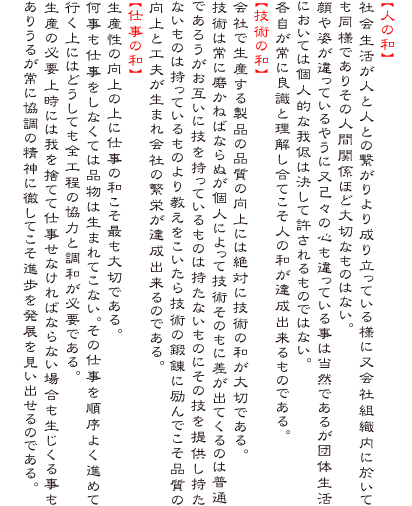 【人の和】
社会生活が人と人との繋がりより成り立っている様に又会社組織内に於いて
も同様でありその人間関係ほど大切なものはない。
顔や姿が違っているやうに又己々の心も違っている事は当然であるが団体生活
においては個人的な我侭は決して許されるものではない。
各自が常に良識と理解し合てこそ人の和が達成出来るものである。
【技術の和】
会社で生産する製品の品質の向上には絶対に技術の和が大切である。
技術は常に磨かねばならぬが個人によって技術そのもに差が出てくるのは普通
であろうがお互いに技を持っているものは持たないものにその技を提供し持た
ないものは持っているものより教えをこいたら技術の鍛錬に励んでこそ品質の
向上と工夫が生まれ会社の繁栄が達成出来るのである。
【仕事の和】
生産性の向上の上に仕事の和こそ最も大切である。
何事も仕事をしなくては品物は生まれてこない。その仕事を順序よく進めて
行く上にはどうしても全工程の協力と調和が必要である。
生産の必要上時には我を捨てて仕事せなければならない場合も生じくる事も
ありうるが常に協調の精神に徹してこそ進歩を発展を見い出せるのである。